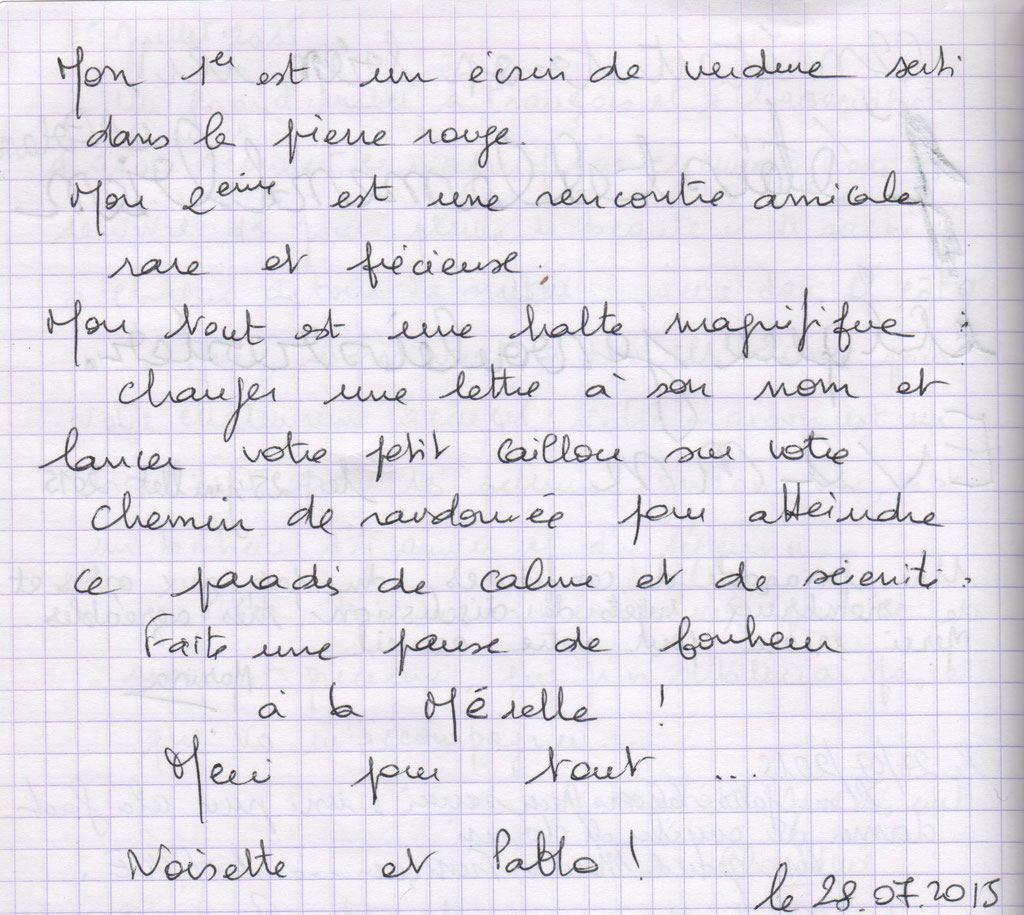 Mon 1er est un écrin de verdure serti
dans la pierre rouge.
Mon 2ème est une rencontre amicale
rare et précieuse.
Mon tout est une halte magnifique :
changer une lettre à son nom et
lancer votre petit caillou sur votre
chemin de randonnée pour atteindre
ce paradis de calme et de sérénité.
Faite une pause de bonheur
à la Mérelle !
Merci pour tout ...
Noisette et Pablo !
le 28.07.2015